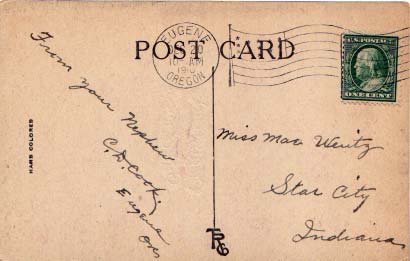 POST CARD
EUGENE
10-AM
191
OREGON
U.S. POSTAGE
ONE CENT
HAND COLORED
From your Nephew
C.D. Cook
Eugene
Ore
Miss Mae Wentz
Star City
Indiana